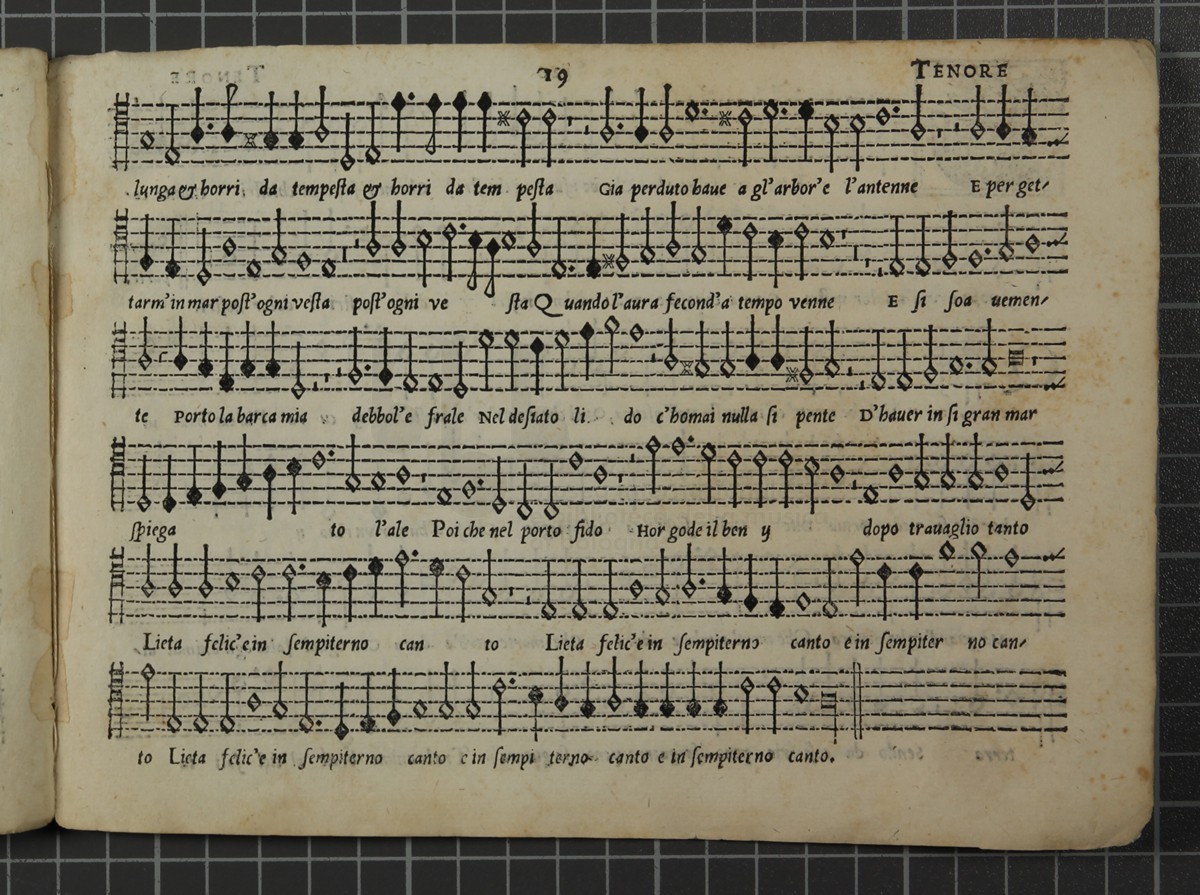 19 TENORE
lunga & horri da tempesta & horri da tem pesta Gia perduto haue a gl'arbor'e l'antenne E per get/
tarm'in mar post'ogni vesta post'ogni ve sta Q uando l'aura fecond'a tempo venne E si soa uemen/
te Porto la barca mia debbol'e frale Nel desiato li do c'homai nulla si pente D'hauer in si gran mar
spiega to l'ale Poi che nel porto fido Hor gode il ben y dopo trauaglio tanto
Lieta felic'e in sempiterno can to Lieta felic'e in sempiterno canto e in sempiter no can/
to Lieta felic'e in sempiterno canto e in sempi terno canto e in sempiterno canto.